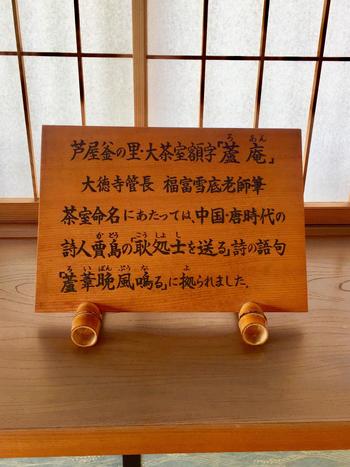 芦屋釜の里・大茶室額字「蘆庵」
大徳寺管長 福富雪底老師筆
茶室命名にあたっては、中国・唐時代の
詩人賈島の「耿処士を送る」詩の語句
「蘆葦晩風鳴る」に拠られました。